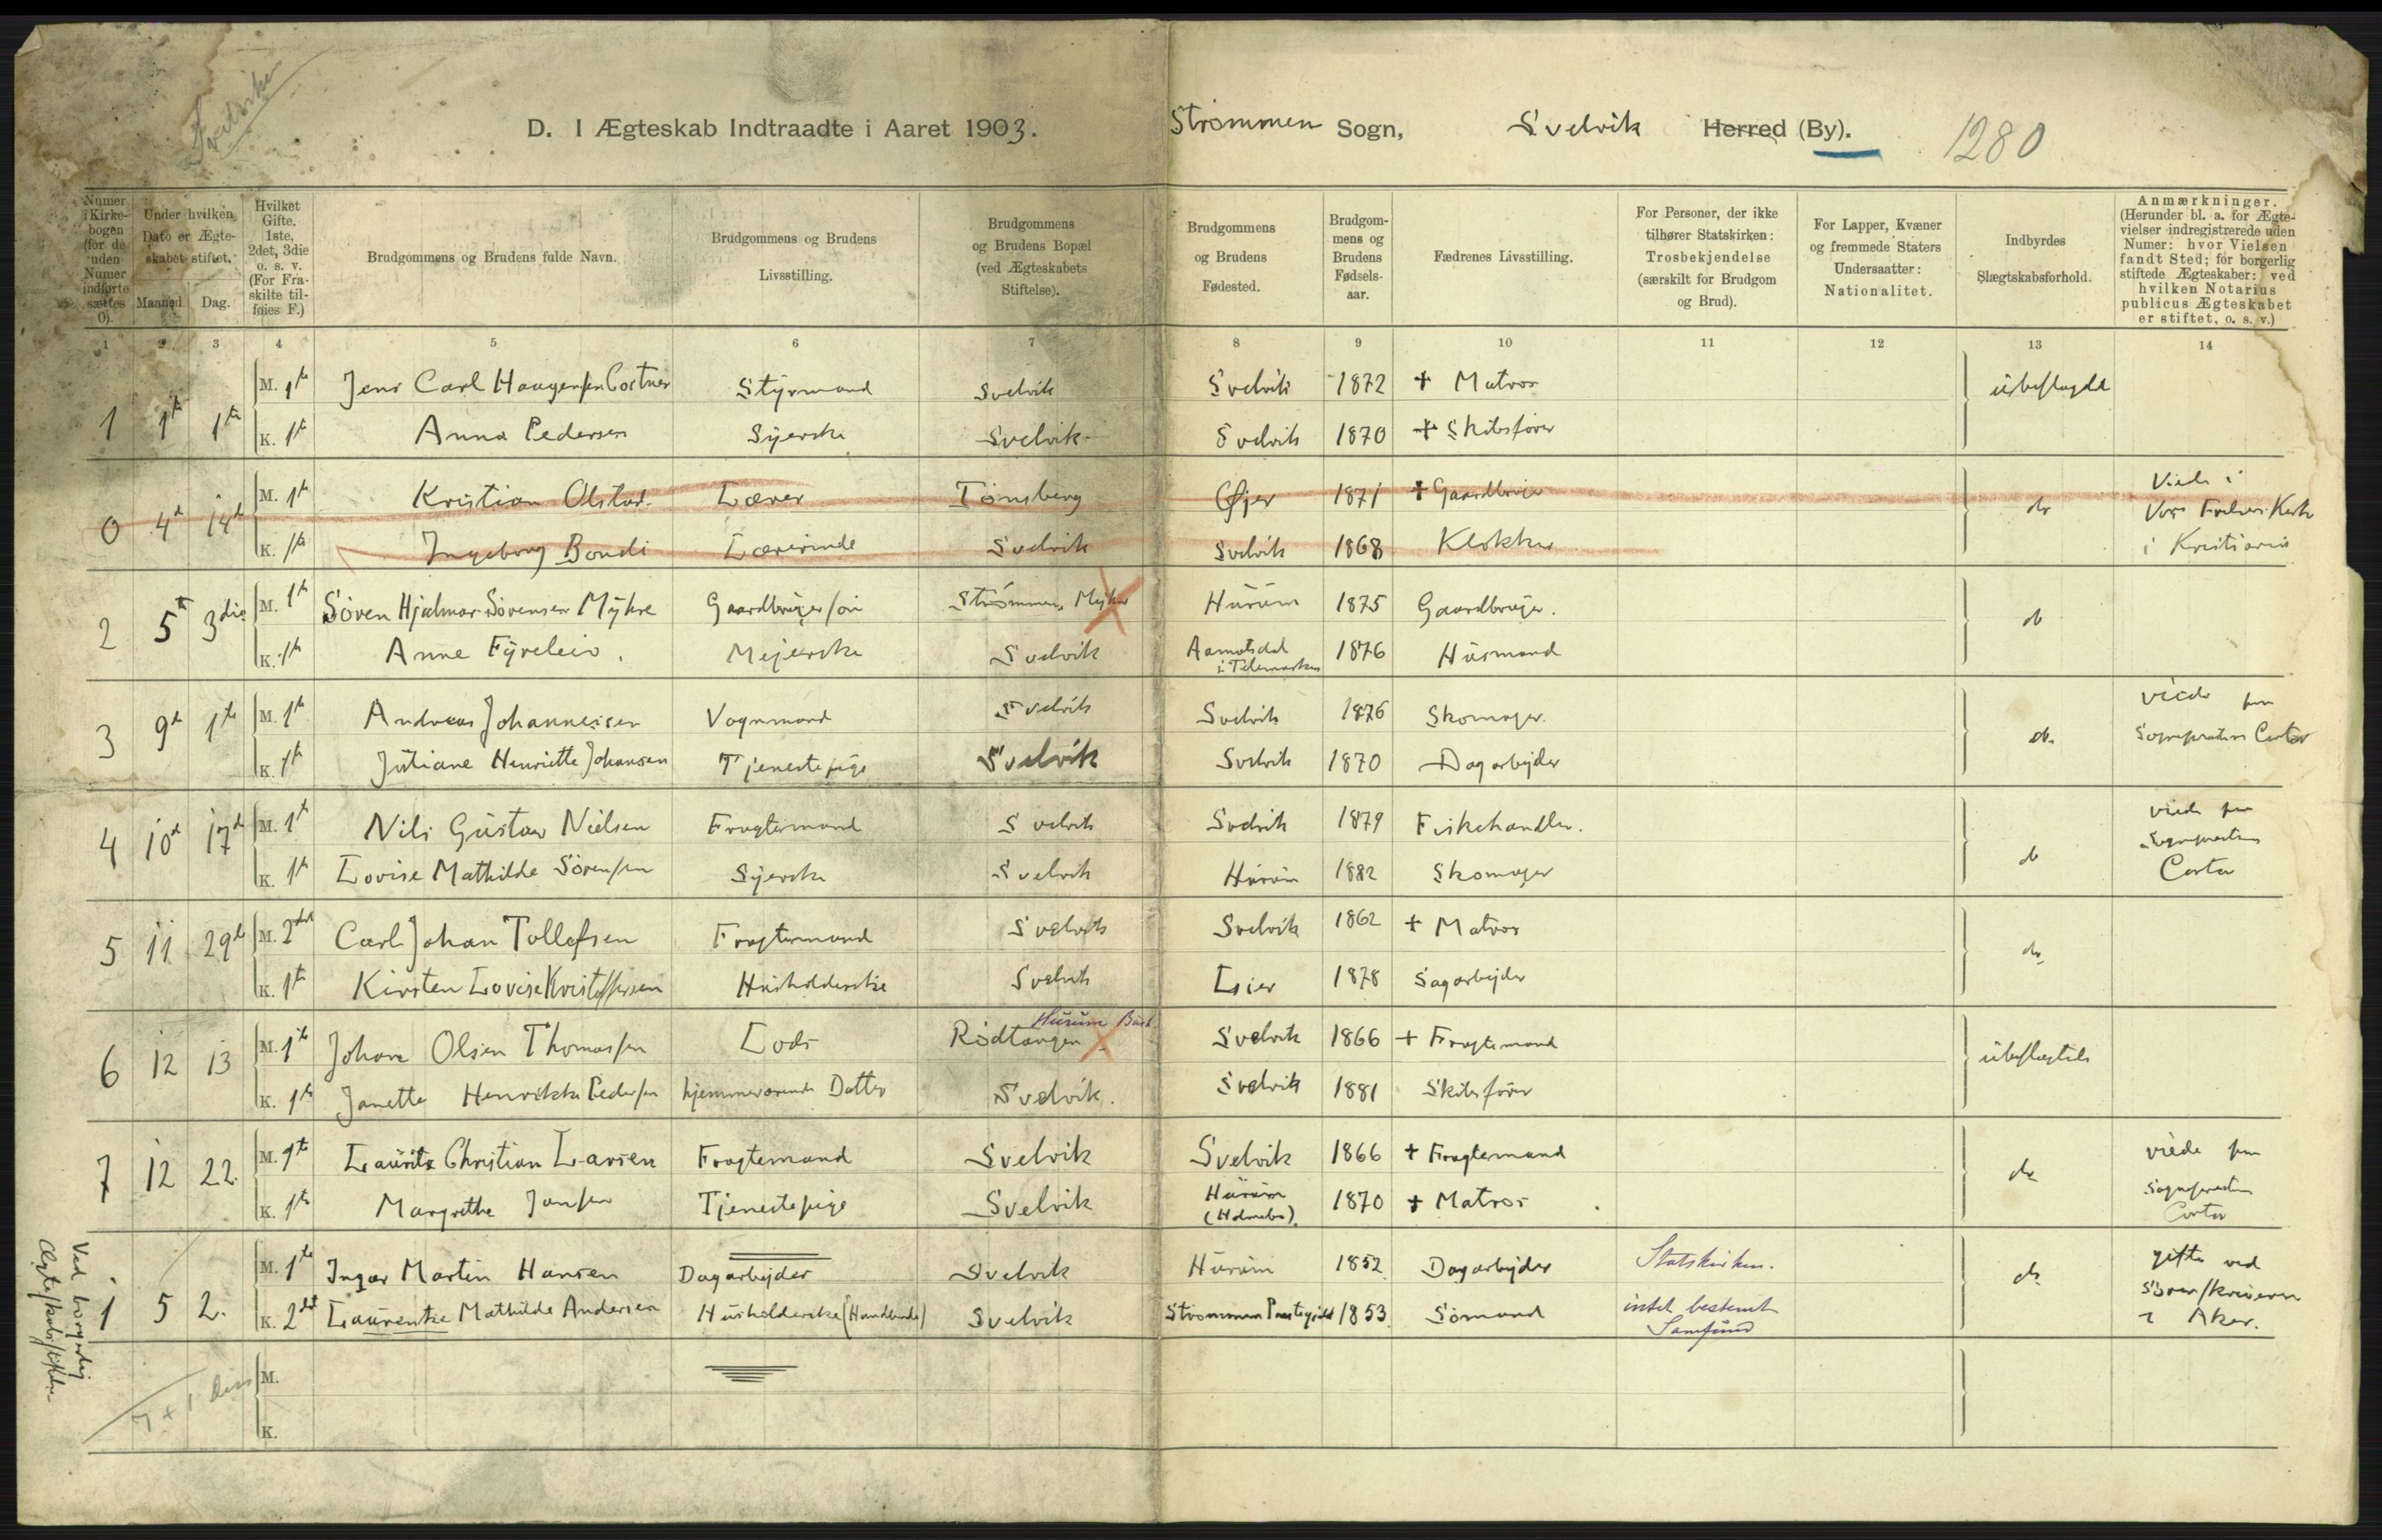 D. I Ægteskab Indtraadte i Aaret 1903. Strømmen Sogn, Svelvik Herred (By). 1280
Numer i Kirkebogen (for de uden Numer indførte sættes 0).
Under hvilken Dato er Ægteskabet stiftet.
Maaned. Dag.
Hvilket Gifte. 1ste, 2det, 3die o. s. v. (For Fraskilte tilføies F.)
Brudgommens og Brudens fulde Navn.
Brudgommens og Brudens Livsstilling.
Brudgommens og Brudens Bopæl (ved Ægteskabets Stiftelse).
Brudgommens og Brudens Fødested.
Brudgommens og Brudens Fødselsaar.
Fædrenes Livsstilling.
For Personer, der ikke tilhører Statskirken: Trosbekjendelse (særskilt for Brudgom og Brud).
For Lapper, Kvæner og fremmede Staters Undersaatter: Nationalitet.
Indbyrdes Slægtskabsforhold.
Anmærkninger. (Herunder bl. a. for Ægtevielser indregistrerede uden Numer: hvor Vielsen fandt Sted; for borgerlig stiftede Ægteskaber: ved hvilken Notarius publicus Ægteskabet er stiftet, o. s. v.)
1 2 3 4 5 6 7 8 9 10 11 12 13 14
1 1te 1te M. 1te Jens Carl Haagensen Styrmand Svelvik Svelvik 1872 + Matros ubeslægtet
K. 1te Anna Pedersen Syerske Svelvik Svelvik 1870 + Skibsfører
0 4de 14de M. 1te Kristian Olstad Lærer Tønsberg Øjer 1871 + Gaardbruger do Viede i Vor Frelsers Kirke
K. 1te Ingeborg Bondi Lærerinde Svelvik Svelvik 1868 Klokker i Kristiania
2 5te 3die M. 1te Søren Hjalmar Sørensen Myhre Gaardbrugersøn Strømmen, Myhre Hurum 1875 Gaardbruger. do
K. 1te Anne Fyreleiv. Mejerske Svelvik Aamotsdal i Telemarken 1876 Husmand
3 9de 1te M. 1te Andreas Johannesen Vognmand Svelvik Svelvik 1876 Skomager. do. viede
K. 1te Juliane Henriette Johansen Tjenestepige Svelvik Svelvik 1870 Dagarbejder Sognepresten
4 10de 17de M. 1te Nils Gustav Nielsen Fragtemand Svelvik Svelvik 1879 Fiskehandler. do viede
K. 1te Lovise Mathilde Sørensen Syerske Svelvik Hurum 1882 Skomager Sognepresten
5 11 29de M. 2det Carl Johan Tollefsen Fragtemand Svelvik Svelvik 1862 + Matros do.
K. 1te Kirsten Lovise Kristoffersen Husholderske Svelvik Lier 1878 Sagarbejder
6 12 13 M. 1te Johan Olsen Thomassen Lods Rødtangen Hurum Svelvik 1866 + Fragtemand ubeslægtede
K. 1te Janette Henrikke Pedersen hjemmeværende Datter Svelvik. Svelvik 1881 Skibsfører
7 12 22. M. 1te Lauritz Christian Larsen Fragtemand Svelvik Svelvik 1866 + Fragtemand do. viede
K. 1te Margrethe Jansen Tjenestepige Svelvik Hurum 1870 + Matros Sognepresten
1 5 2. M. 1te Ingar Martin Hansen Dagarbejder Svelvik Hurum 1852 Dagarbejder Statskirken. do. gifte ved
K. 2det Laurentze Mathilde Andersen Husholderske Svelvik Strømmen Prestegjeld 1853 Sømand intet bestemt Samfund Sorenskriveren i Aker.
Ved borgerlig
7 + 1
M.
K.